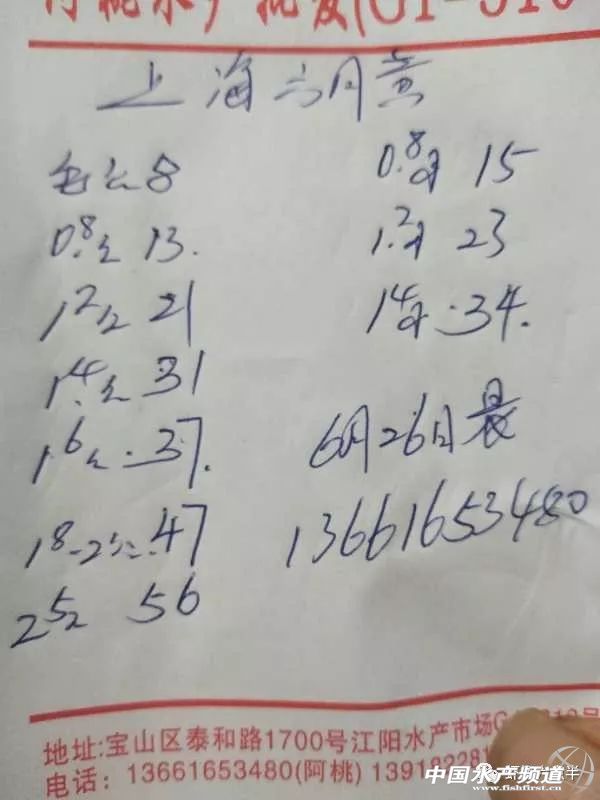 水产批发
上海六月黄
毛公8
0.8公 13.
1.2公 21
1.4公 31
1.6公 37.
1.8-2公 47
2.5公 56
0.8母 15
1.2母 23
1.4母 34.
6月26日晨
13661653480
地址:宝山区泰和路1700号江阳水产市场
电话: 13661653480(阿桃)
中国水产频道
www.fishfirst.cn